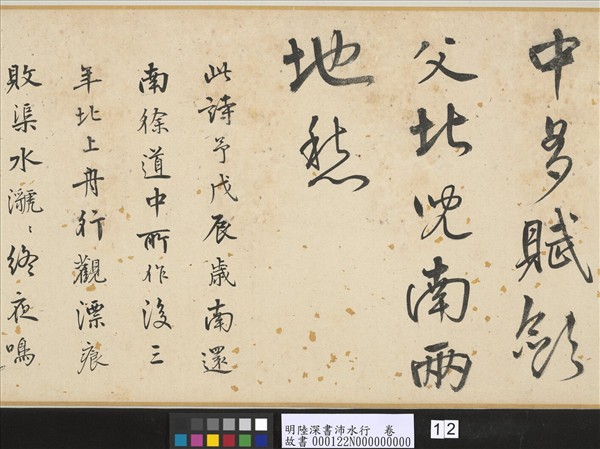 中多賦斂
父北兒南兩
地愁
此詩予戊辰歲南還
南徐道中所作後三
年北上舟行觀漂痕
敗渠水㶁㶁終夜鳴
明陸深書沛水行　卷
故書 000122N000000000
12